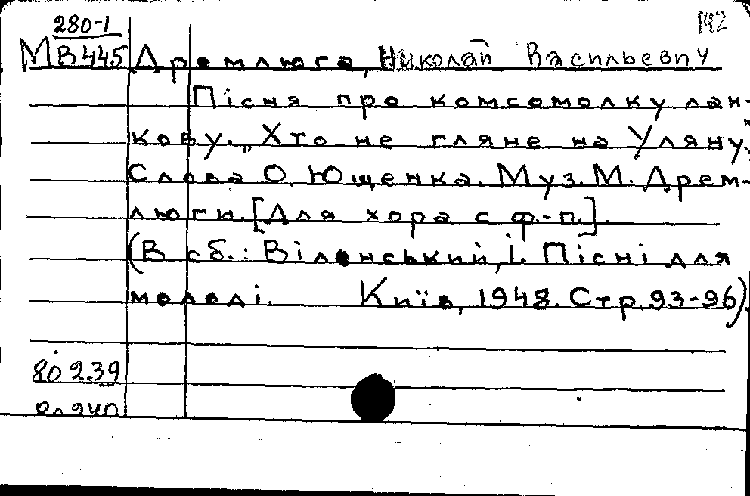 280-1
142
МВ445 Дремлюга, Николай Васильевич
Пісня про комсомолку лан-
кову. „Хто не гляне на Уляну".
Слова О. Ющенка. Муз. М. Дрем-
люги. [Для хора с ф.-п.].
(В сб.: Віленський, І. Пісні для
молоді. Київ, 1948. Стр. 93-96).
80 239